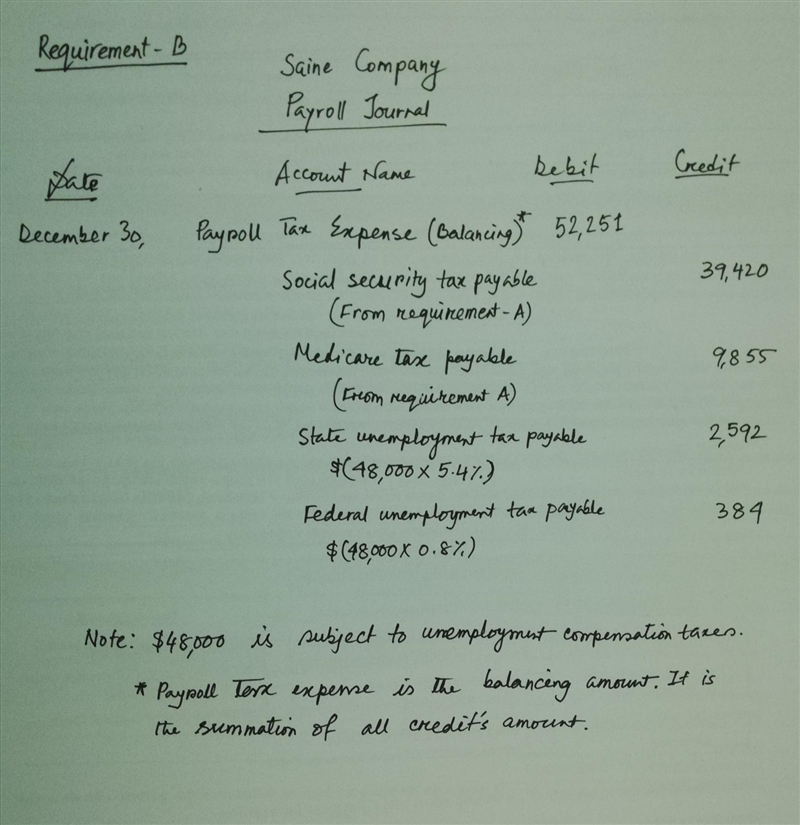 Requirement - B
Saine Company
Payroll Journal
Date Account Name Debit Credit
December 30, Payroll Tax Expense (Balancing)* 52,251
Social security tax payable 39,420
(From requirement - A)
Medicare tax payable 9,855
(From requirement A)
State unemployment tax payable 2,592
$(48,000 X 5.4%)
Federal unemployment tax payable 384
$(48,000 X 0.8%)
Note: $48,000 is subject to unemployment compensation taxes.
* Payroll Tax expense is the balancing amount. It is
the summation of all credit's amount.